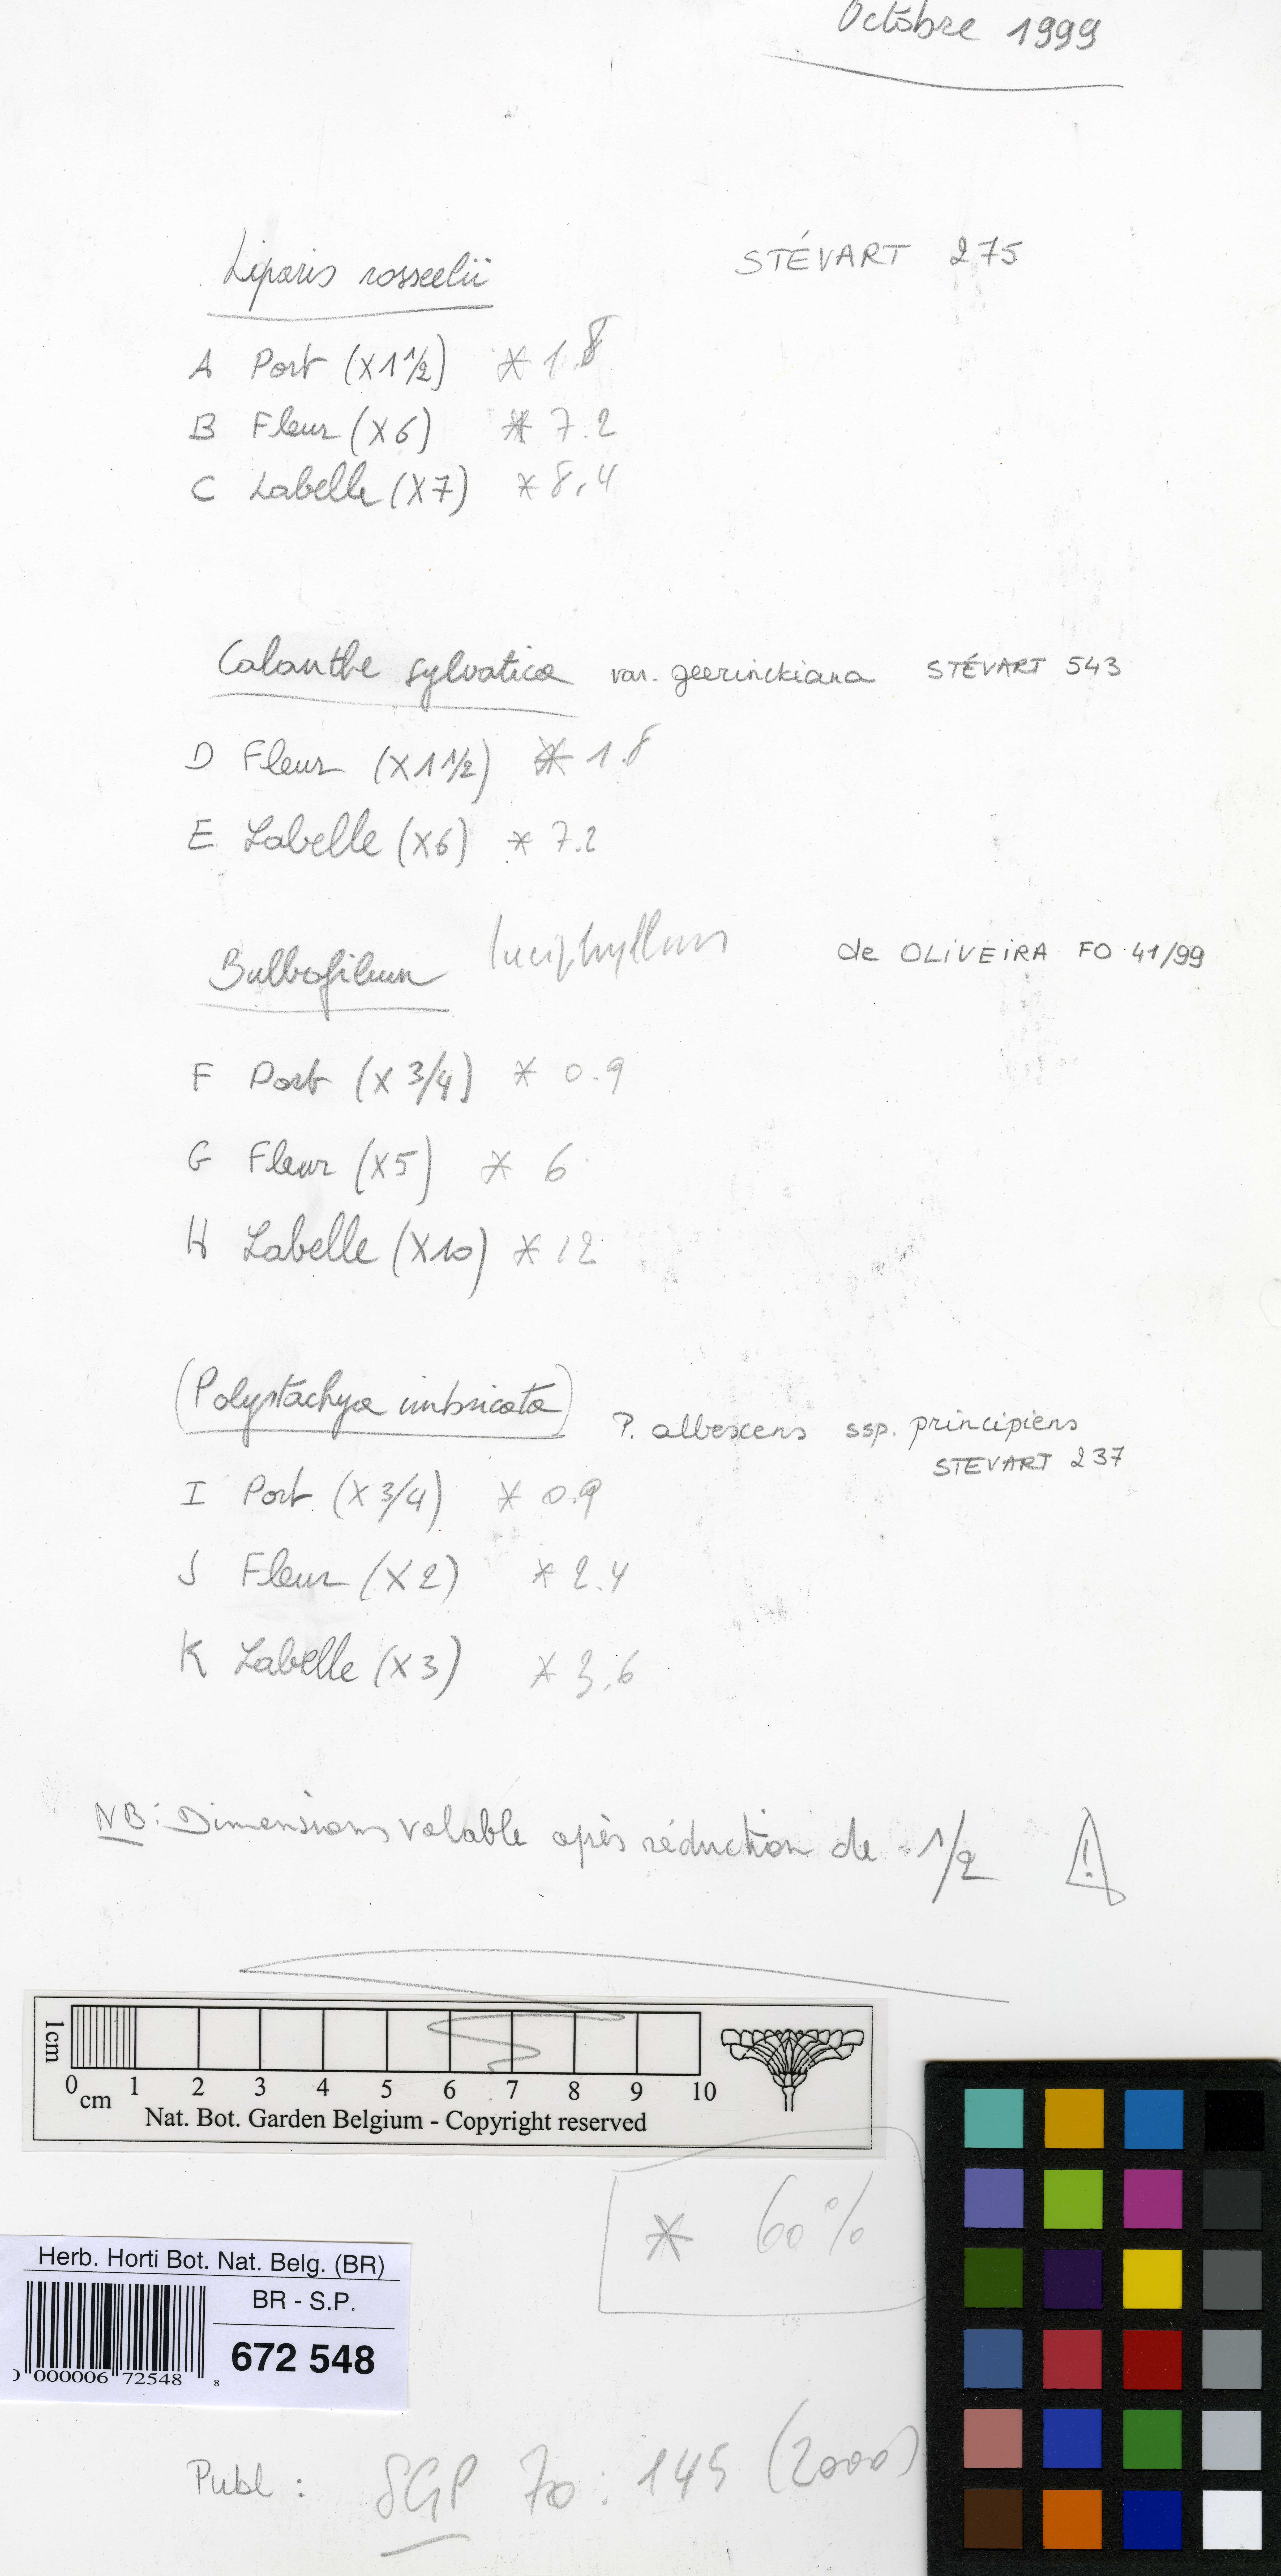 Octobre 1999
Liparis rosseelii STÉVART 275
A Port (X1 1/2) * 1.8
B Fleur (X6) * 7.2
C Labelle (X7) * 8.4
Calanthe sylvatica var. geerinckiana STÉVART 543
D Fleur (X1 1/2) * 1.8
E Labelle (X6) * 7.2
Bulbofilum luciphyllum de OLIVEIRA FO 41/99
F Port (X 3/4) * 0.9
G Fleur (X5) * 6
H Labelle (X10) * 12
(Polystachya imbricata) P. albescens ssp. principiens
STEVART 237
I Port (X 3/4) * 0.9
J Fleur (X2) * 2.4
K Labelle (X3) * 3.6
NB: Dimensions valable après réduction de 1/2 !
1cm
0 1 2 3 4 5 6 7 8 9 10
cm
Nat. Bot. Garden Belgium - Copyright reserved
* 60%
Herb. Horti Bot. Nat. Belg. (BR)
BR - S.P.
672 548
000006 72548 8
Publ: SGP 70: 145 (2000)